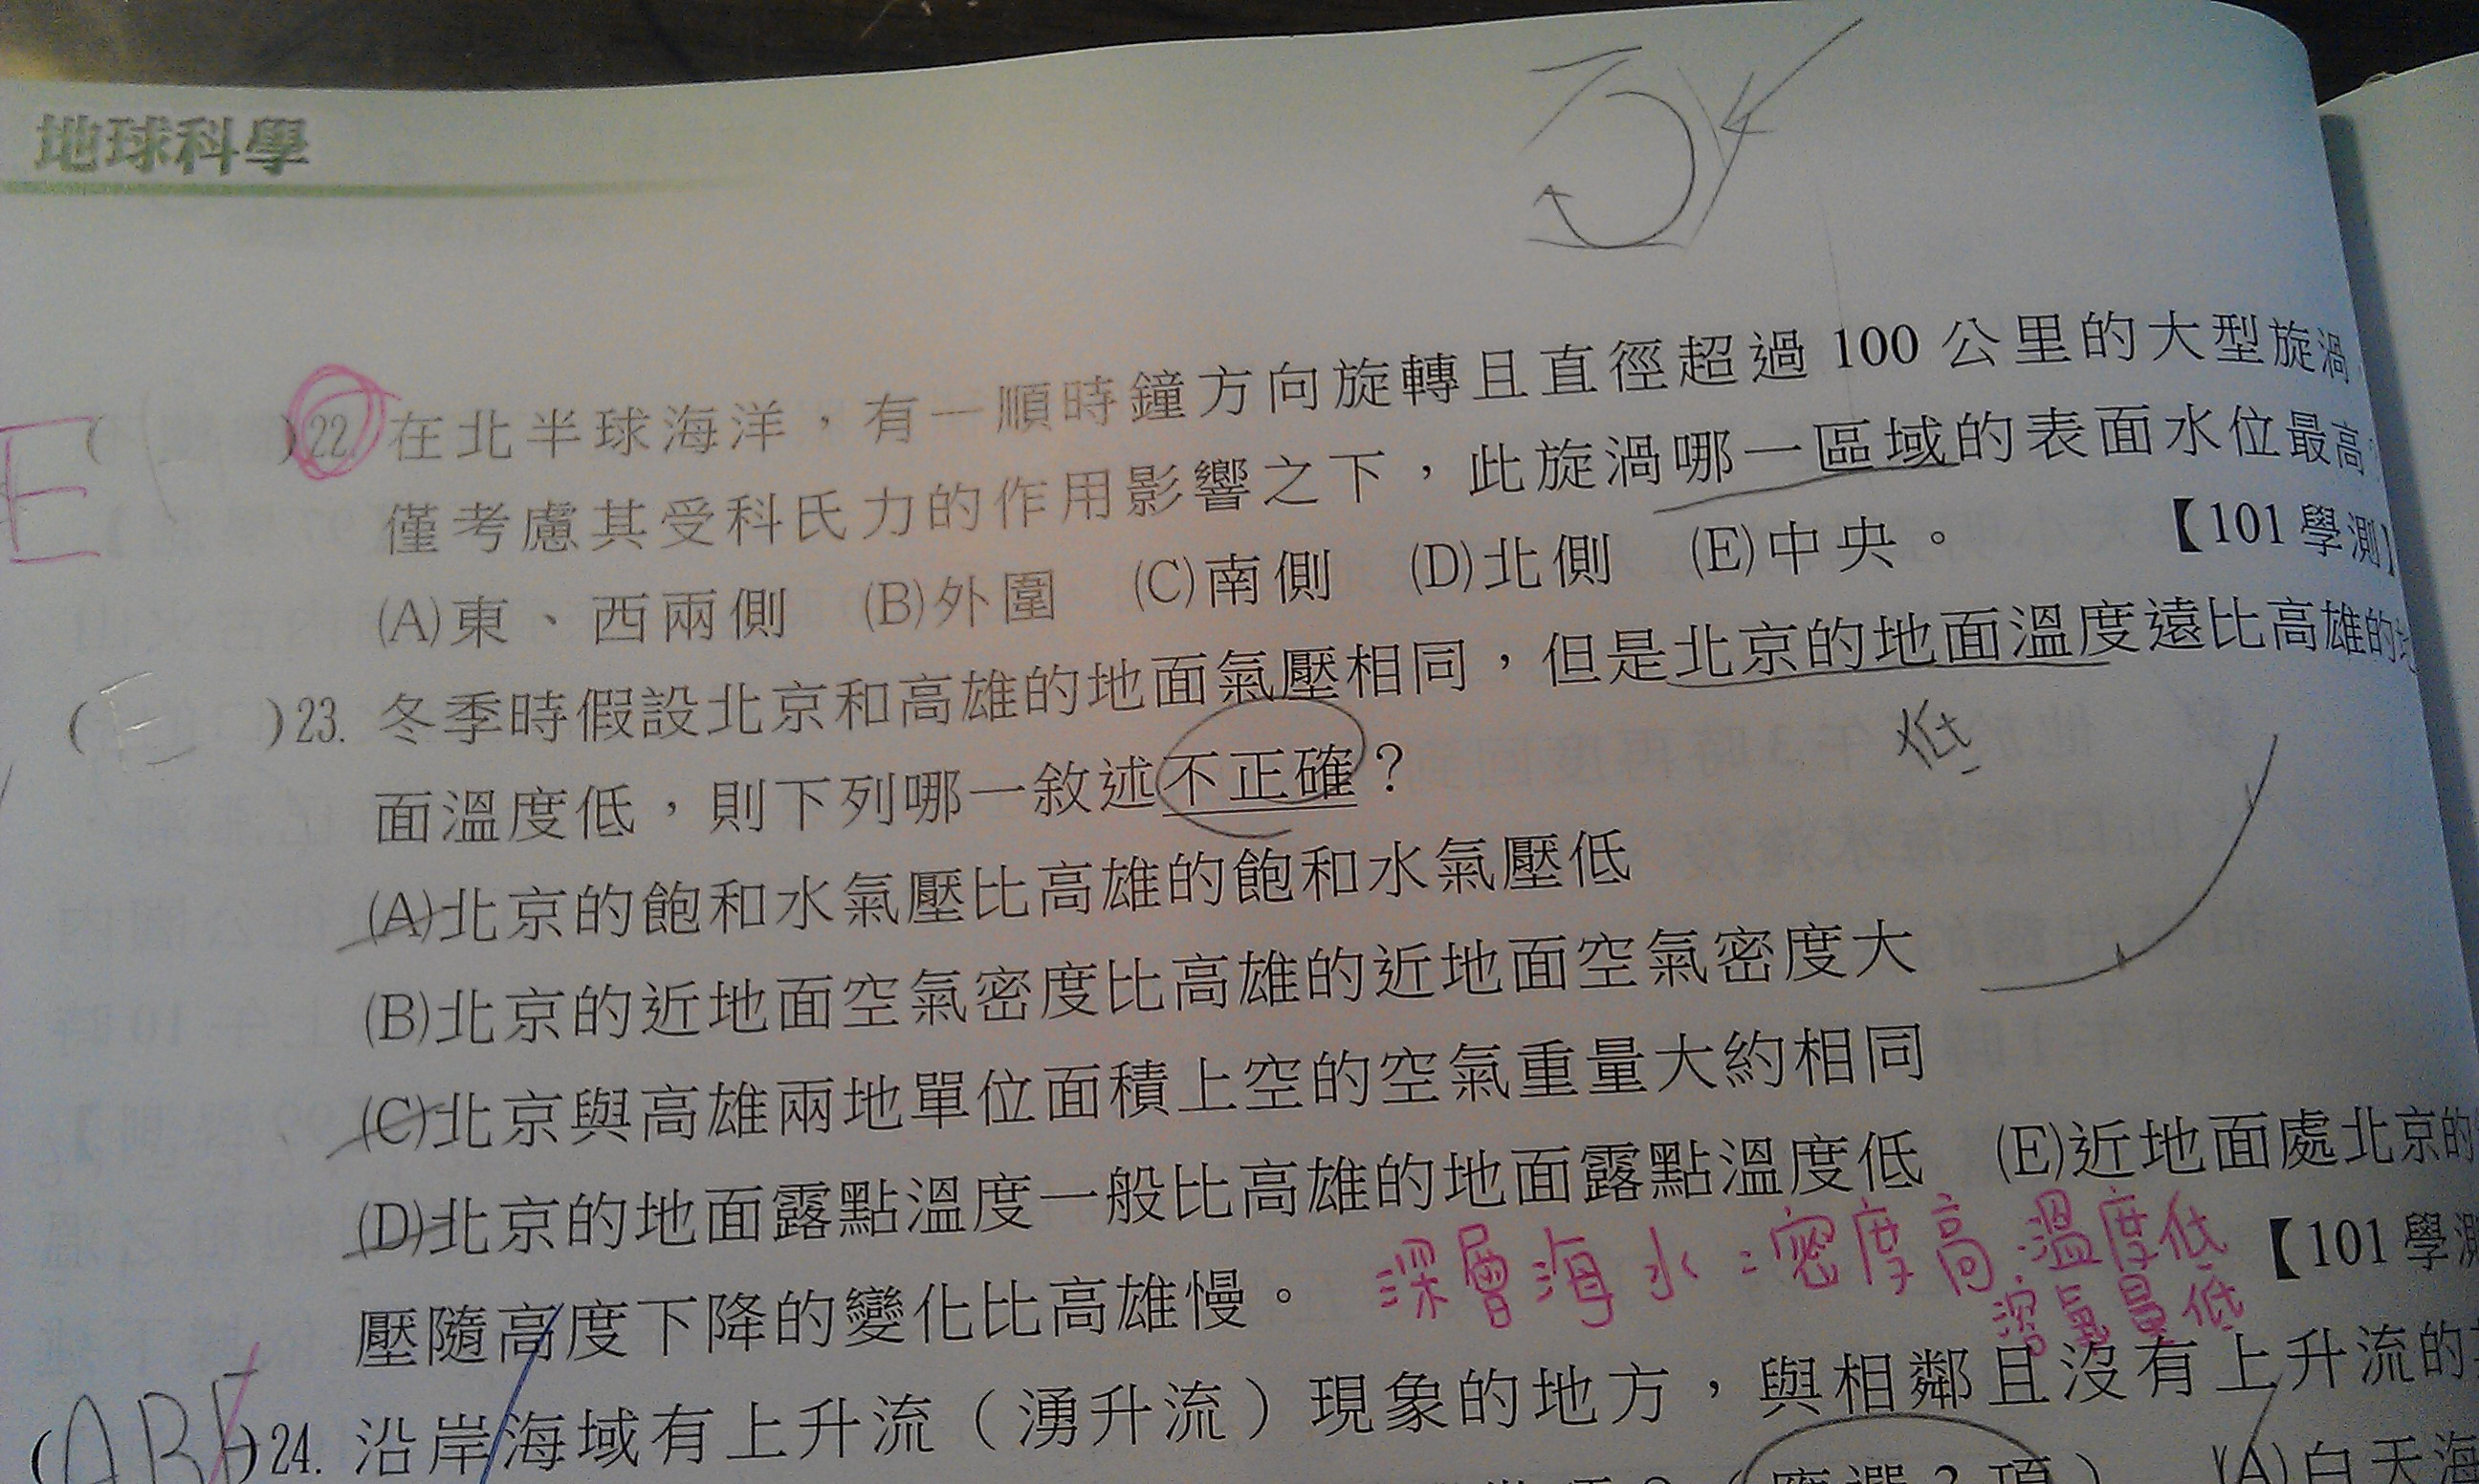 地球科學
E ( )22. 在北半球海洋，有一順時鐘方向旋轉且直徑超過 100 公里的大型旋渦
僅考慮其受科氏力的作用影響之下，此旋渦哪一區域的表面水位最高
(A)東、西兩側 (B)外圍 (C)南側 (D)北側 (E)中央。 【101 學測】
( E )23. 冬季時假設北京和高雄的地面氣壓相同，但是北京的地面溫度遠比高雄的地
低
面溫度低，則下列哪一敘述不正確？
(A)北京的飽和水氣壓比高雄的飽和水氣壓低
(B)北京的近地面空氣密度比高雄的近地面空氣密度大
(C)北京與高雄兩地單位面積上空的空氣重量大約相同
(D)北京的地面露點溫度一般比高雄的地面露點溫度低 (E)近地面處北京的
壓隨高度下降的變化比高雄慢。 【101 學測
深層海水：密度高 溫度低
溶氧量低
( AB )24. 沿岸海域有上升流（湧升流）現象的地方，與相鄰且沒有上升流的
應選 3 項） (A)白天海